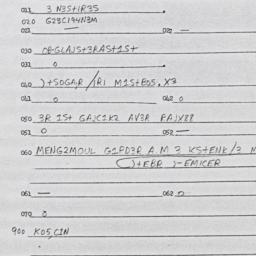 011 3 N3S+IR3S
020 G23C194N3M
021 — 022 —
030 OB-GLAJS+3RAS+1S+
031 0
040 )+SOGAR/IRI M1S+BOS, X3
041 0 042 0
050 3R 1S+ GAJC1K2 AV3R PAJV88
051 0 052 —
060 MENG2MOUL G1PD3R A.M 3 KS+ENK/3 M
)+EBR )-EMICER
061 — 062 0
070 0
900 KOS,C1N